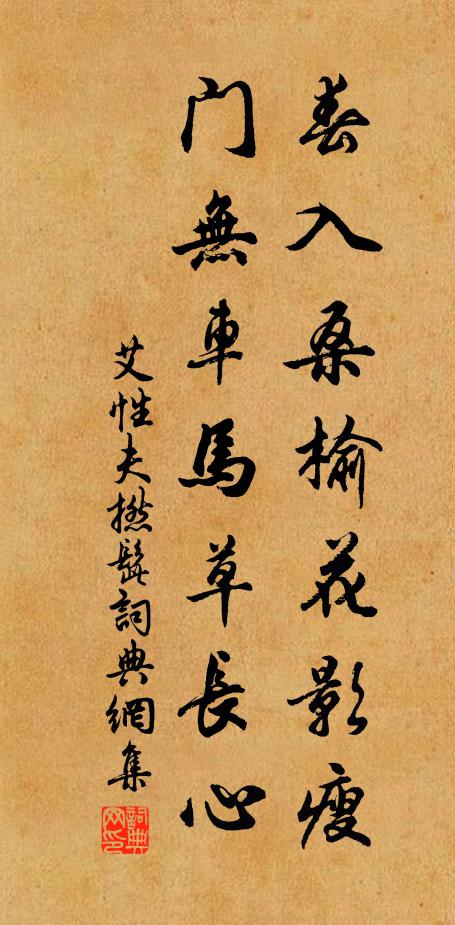 春入桑榆花影瘦
門無車馬草長心
艾性夫撚髭詞典網集
詞典網印